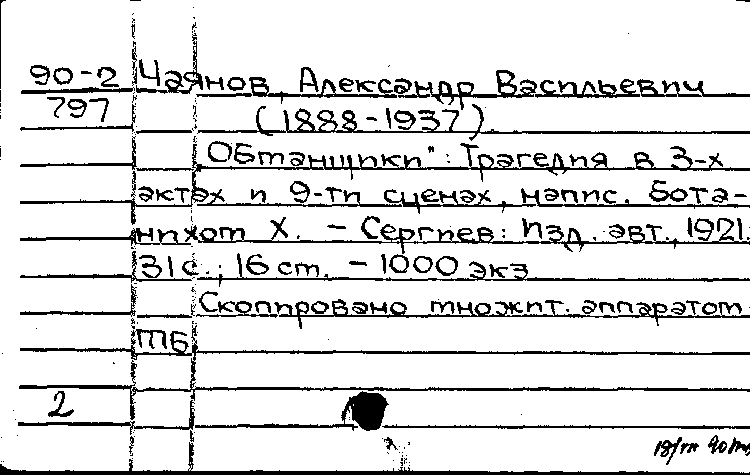 90-2 Чаянов, Александр Васильевич
797 (1888-1937).
„Обманщики": Трагедия в 3-х
актах и 9-ти сценах, напис. Бота-
ником Х. – Сергиев: Изд. авт., 1921.
31 с.; 16 см. – 1000 экз
Скопировано множит. аппаратом
ГПБ.
2